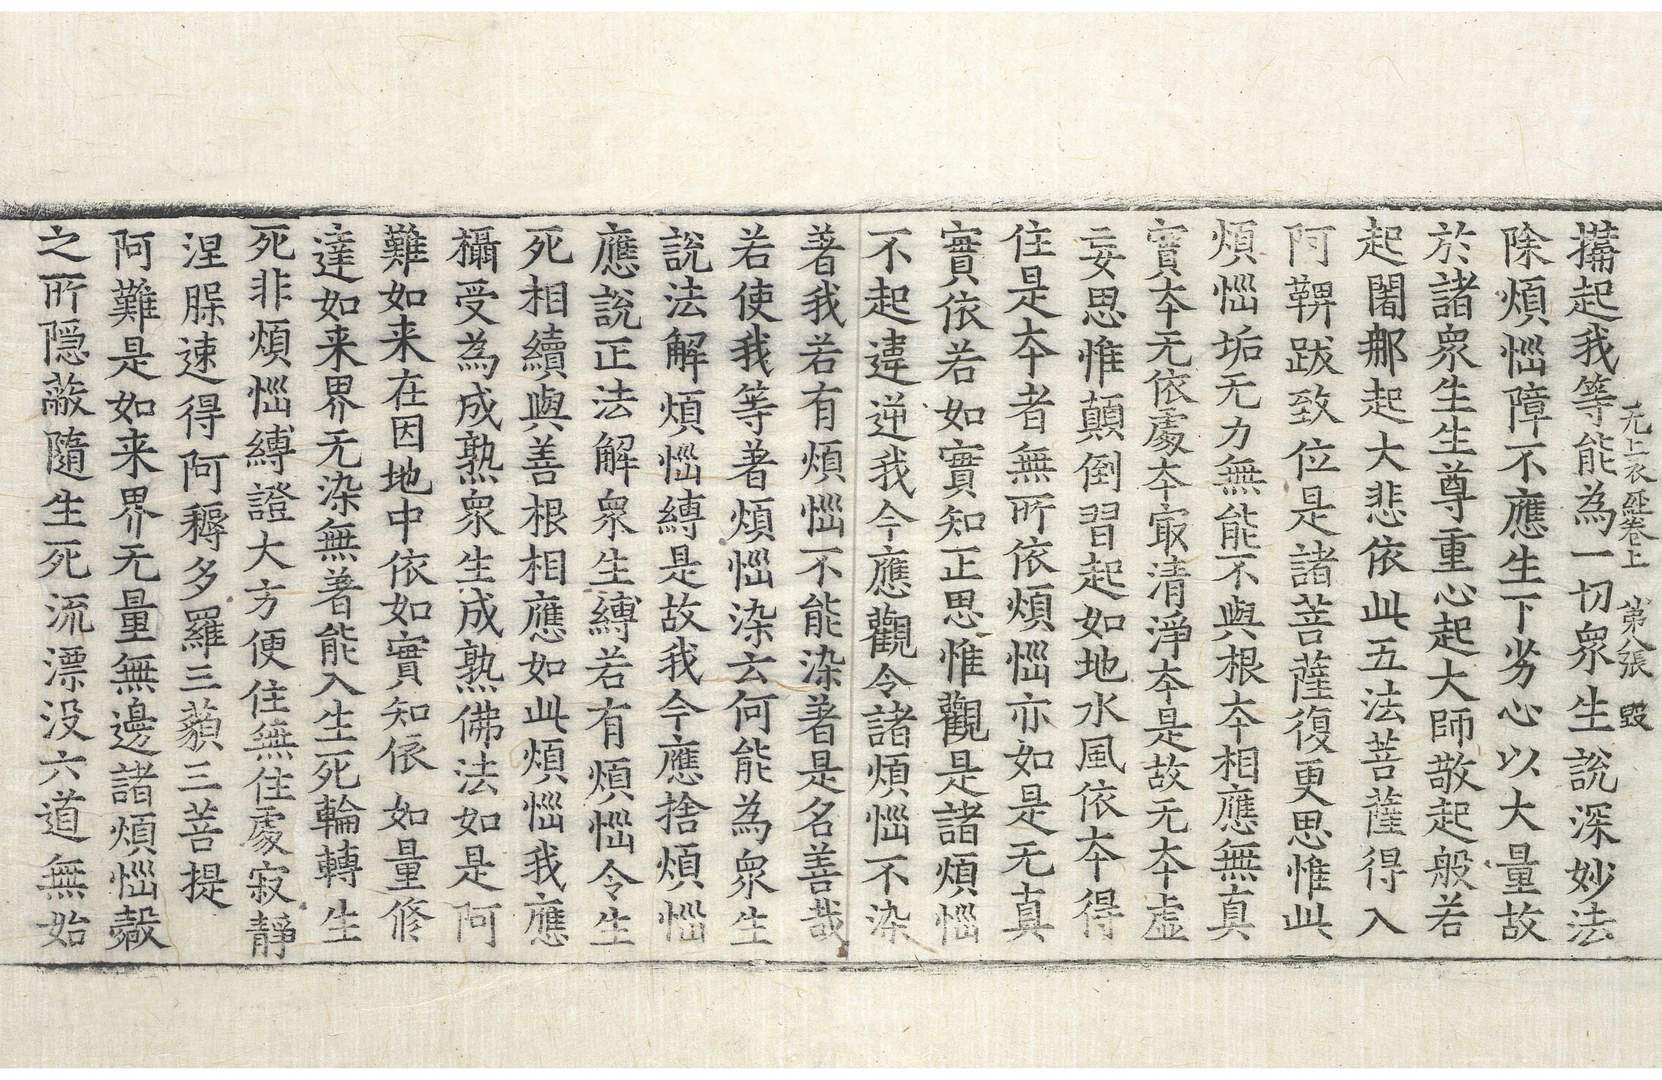 无上依經卷上　第八張　毀
搆起我等能為一切眾生說深妙法
除煩惱障不應生下劣心以大量故
於諸眾生生尊重心起大師敬起般若
起闍那起大悲依此五法菩薩得入
阿鞞跋致位是諸菩薩復更思惟此
煩惱垢无力無能不與根本相應無真
實本无依處本㝡清淨本是故无本虛
妄思惟顛倒習起如地水風依本得
住是本者無所依煩惱亦如是无真
實依若如實知正思惟觀是諸煩惱
不起違逆我今應觀令諸煩惱不染
著我若有煩惱不能染著是名善哉
若使我等著煩惱染云何能為眾生
說法解煩惱縛是故我今應捨煩惱
應說正法解眾生縛若有煩惱令生
死相續與善根相應如此煩惱我應
攝受為成熟眾生成熟佛法如是阿
難如来在因地中依如實知依如量修
達如来界无染無著能入生死輪轉生
死非煩惱縛證大方便住無住處寂靜
涅槃速得阿耨多羅三藐三菩提
阿難是如来界无量無邊諸煩惱㲉
之所隱蔽隨生死流漂没六道無始